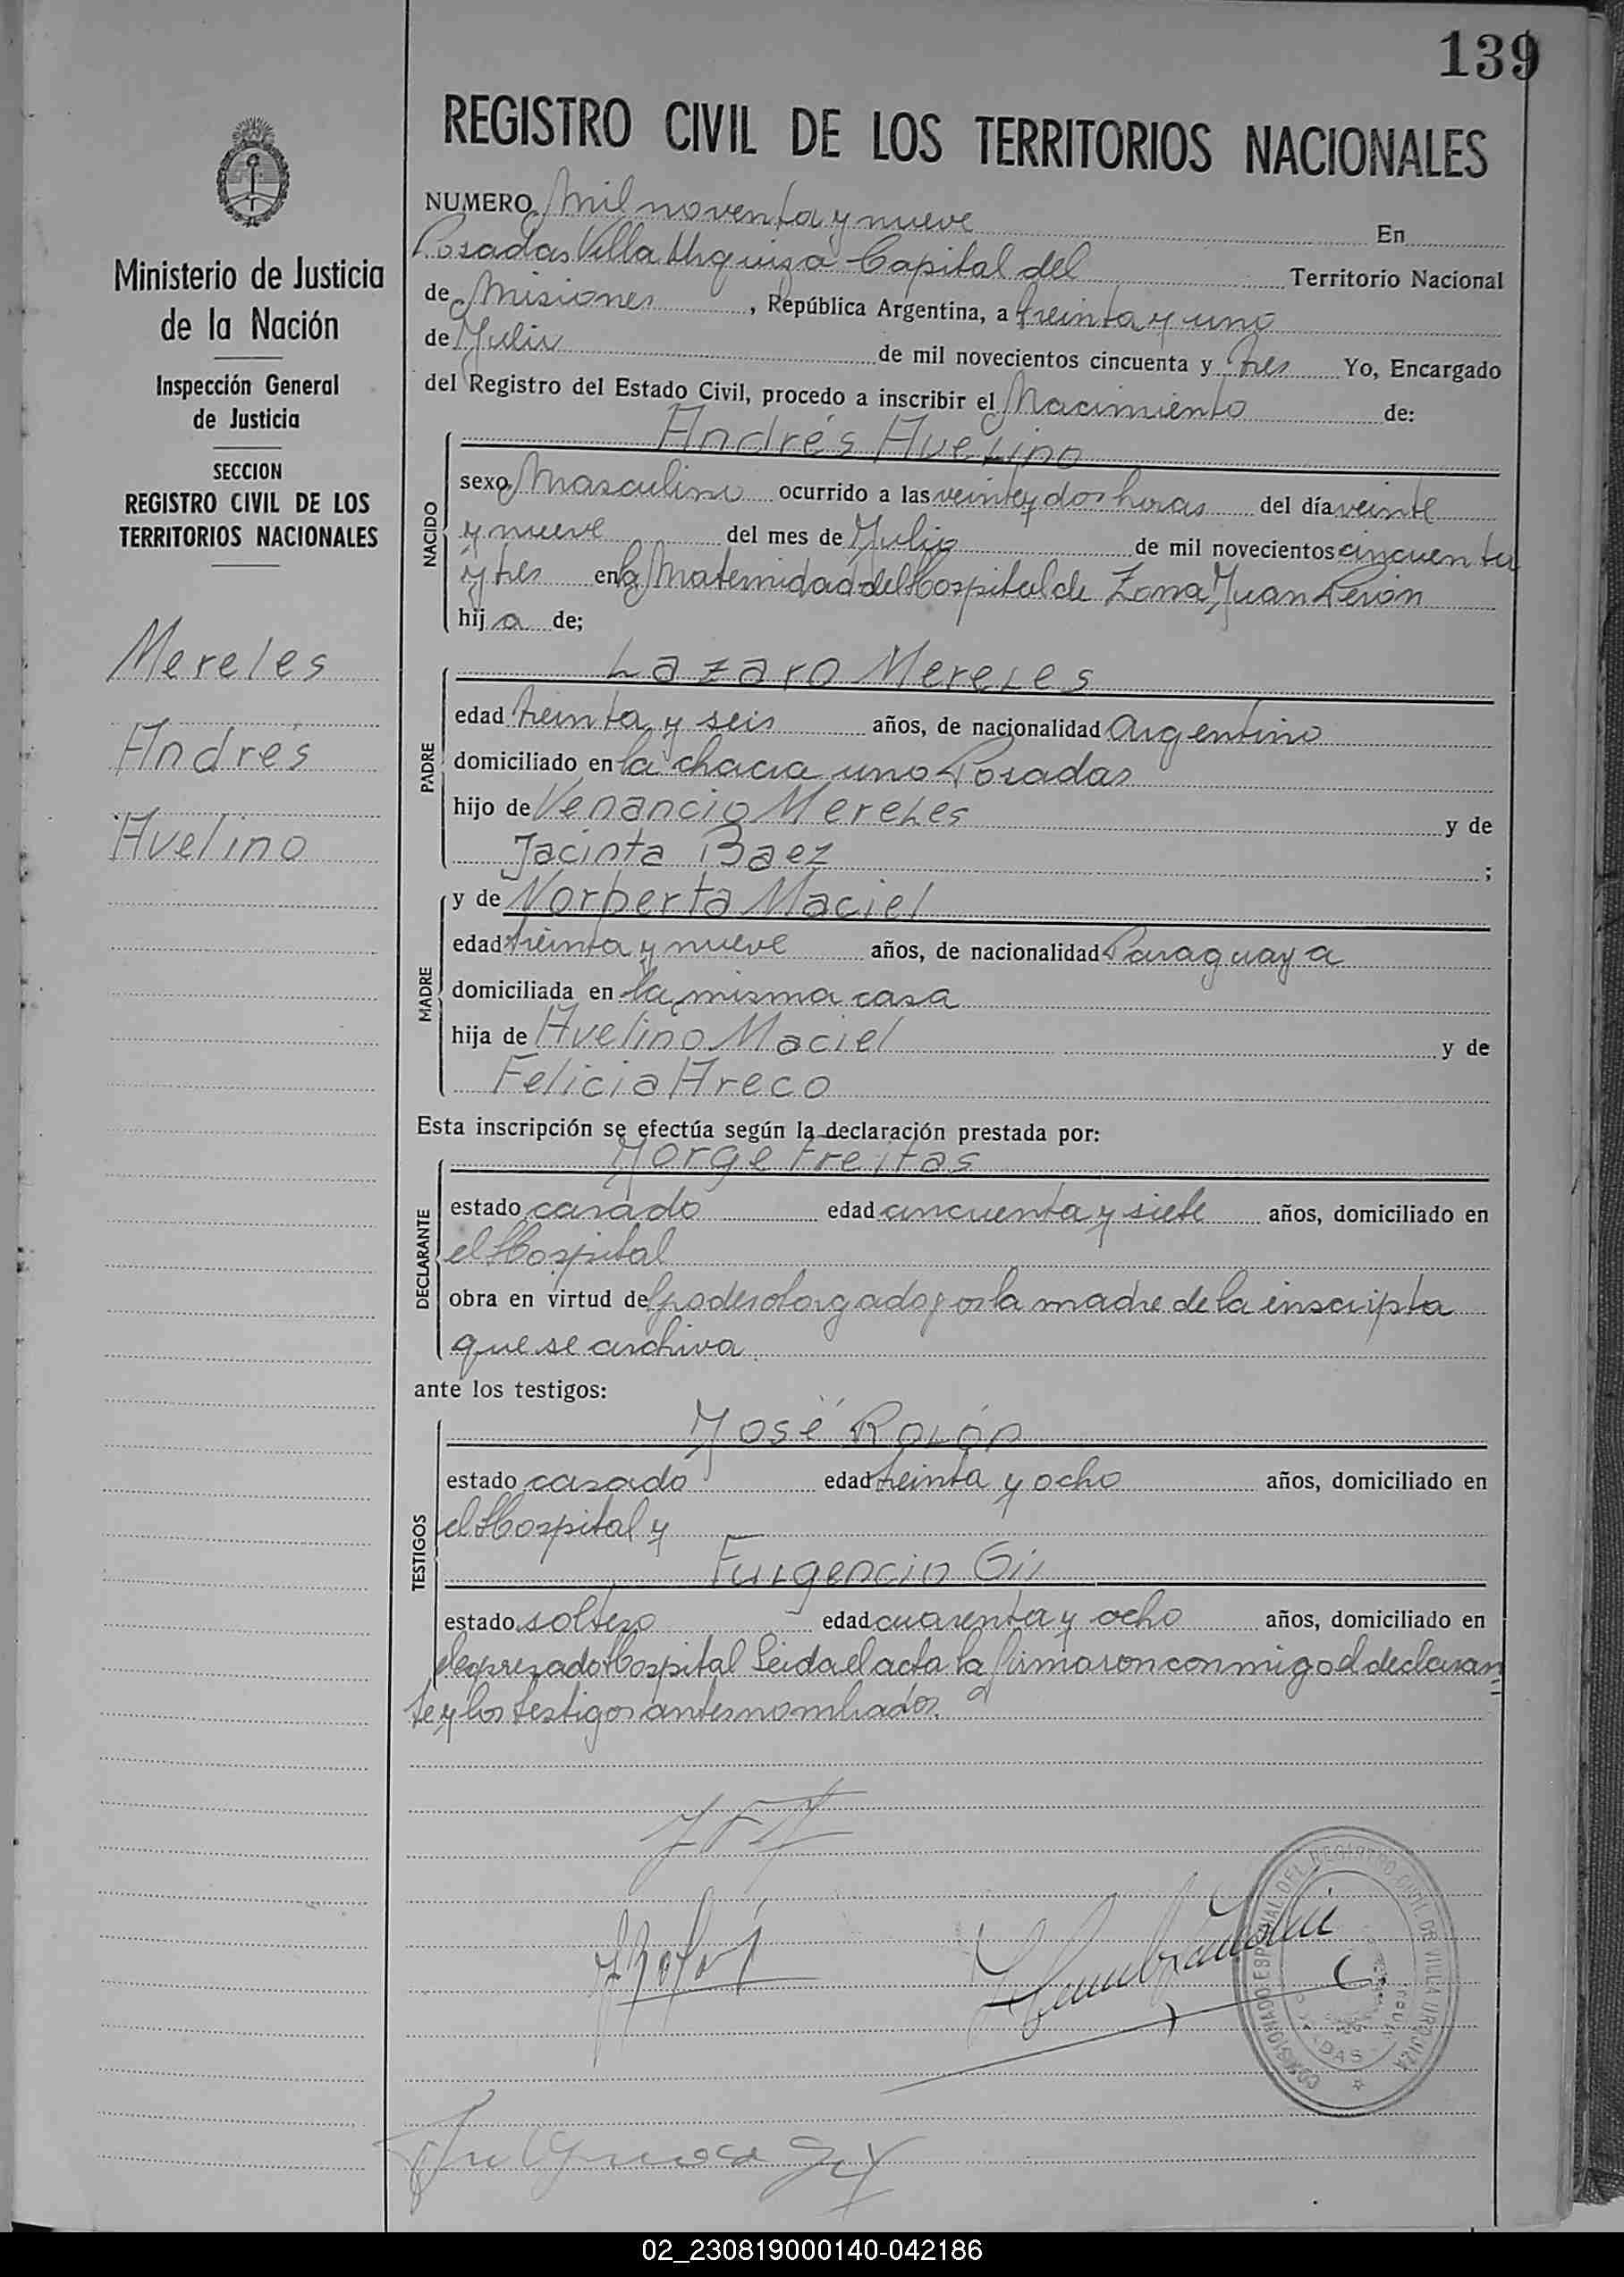 139
REGISTRO CIVIL DE LOS TERRITORIOS NACIONALES
Ministerio de Justicia
de la Nación
Inspección General
de Justicia
SECCION
REGISTRO CIVIL DE LOS
TERRITORIOS NACIONALES
Mereles
Andrés
Avelino
NUMERO Mil noventa y nueve En
Posadas Villa Urquiza Capital del Territorio Nacional
de Misiones, República Argentina, a treinta y uno
de Julio de mil novecientos cincuenta y tres Yo, Encargado
del Registro del Estado Civil, procedo a inscribir el Nacimiento de:
NACIDO
Andrés Avelino
sexo Masculino ocurrido a las veinte y dos horas del día veinte
y nueve del mes de Julio de mil novecientos cincuenta
y tres en la Maternidad del Hospital de Zona Juan Perón
hija de;
PADRE
Lazaro Mereles
edad treinta y seis años, de nacionalidad Argentino
domiciliado en la chacra uno Posadas
hijo de Venancio Mereles y de
Jacinta Baez ;
MADRE
y de Norberta Maciel
edad treinta y nueve años, de nacionalidad Paraguaya
domiciliada en la misma casa
hija de Avelino Maciel y de
Felicia Areco
Esta inscripción se efectúa según la declaración prestada por:
DECLARANTE
Jorge Freitas
estado casado edad cincuenta y siete años, domiciliado en
el Hospital
obra en virtud del poder otorgado por la madre de la inscripta
que se archiva.
ante los testigos:
TESTIGOS
José Rolón
estado casado edad treinta y ocho años, domiciliado en
el Hospital y
Fulgencio Gil
estado soltero edad cuarenta y ocho años, domiciliado en
el expresado Hospital Leida el acta la firmaron conmigo el declaran=
te y los testigos antes nombrados.
JRolón
Fulgencio Gil
COMISIONADO ESPECIAL DEL REGISTRO CIVIL DE VILLA URQUIZA
02_230819000140-042186